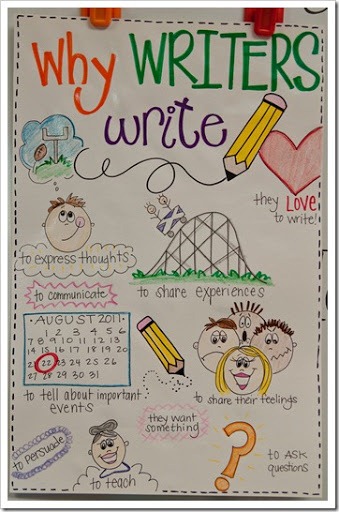 Why WRITERS
write
they LOVE
to write!
to express thoughts
to communicate
to share experiences
• AUGUST 2011 •
1 2 3 4 5 6
7 8 9 10 11 12 13
14 15 16 17 18 19 20
21 22 23 24 25 26
27 28 29 30 31
to tell about important
events
to share their feelings
they want
something
to persuade
to teach
to ASK
questions